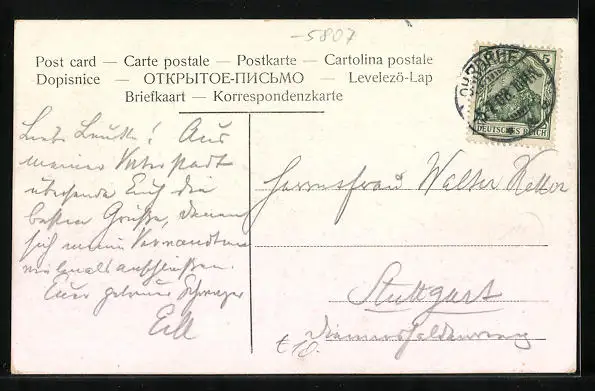 5807
Post card — Carte postale — Postkarte — Cartolina postale
Dopisnice — ОТКРЫТОЕ-ПИСЬМО — Levelező-Lap
Briefkaart — Korrespondenzkarte
5
DEUTSCHES REICH
Liebe Leutle! Aus
meiner Vaterstadt
übersende Euch die
besten Grüße, denen
sich meine Verwandten
anschließen.
Euer getreuer Schwager
Walter Keller
Stuttgart